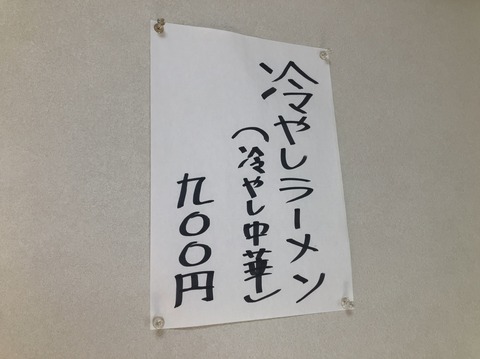 冷やしラーメン
(冷やし中華)
九〇〇円